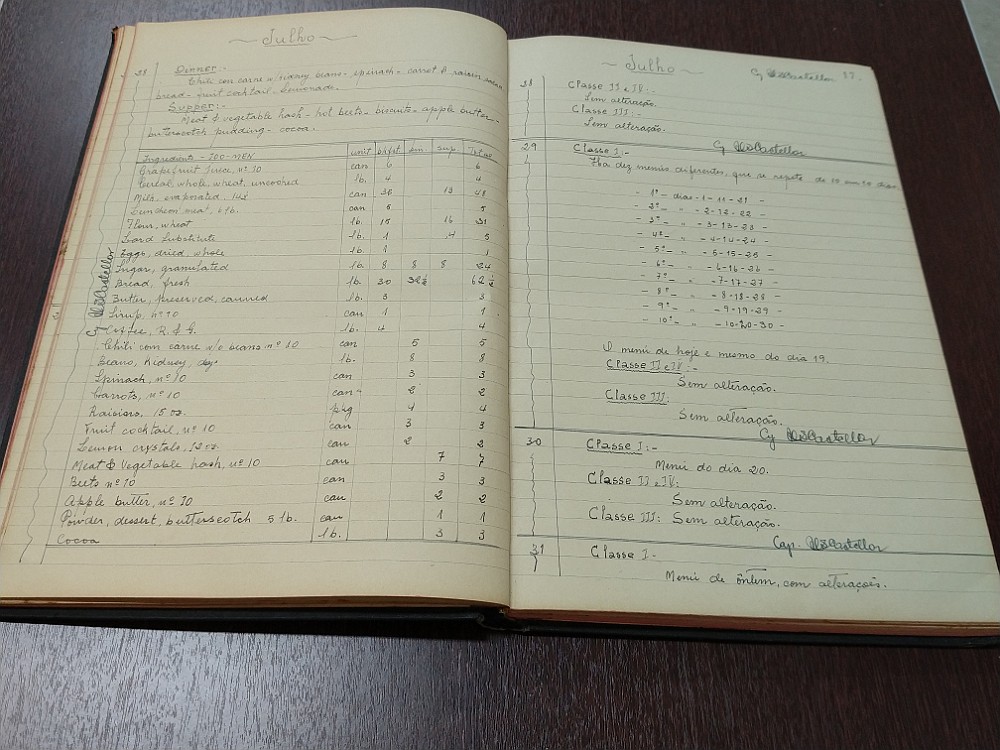 ~ Julho ~
28 Dinner:-
Chili con carne w/ kidney beans - spinach - carrot & raisin salad
bread - fruit cocktail - lemonade.
Supper:-
Meat & vegetable hash - hot beets - biscuits - apple butter -
butterscotch pudding - cocoa.
Ingredients - 100-MEN unit bkfst din sup Total
Grapefruit juice, nº 10 can 6 6
Cereal, whole, wheat, uncooked lb. 4 4
Milk, evaporated, 14½ can 36 12 48
Luncheon meat, 6 lb. can 5 5
Flour, wheat lb. 15 16 31
Lard Substitute lb. 1 4 5
Eggs, dried, whole lb. 1 1
Sugar, granulated lb. 8 8 8 24
Bread, fresh lb. 30 32½ 62½
Butter, preserved, canned lb. 3 3
Sirup, nº 10 can 1 1
Coffee, R. & G. lb. 4 4
Chili com carne w/o beans nº 10 can 5 5
Beans, Kidney, dry lb. 8 8
Spinach, nº 10 can 3 3
Carrots, nº 10 can 2 2
Raisins, 15 oz. pkg 4 4
Fruit cocktail, nº 10 can 3 3
Lemon crystals, 12 oz. can 2 2
Meat & Vegetable hash, nº 10 can 7 7
Beets nº 10 can 3 3
Apple butter, nº 10 can 2 2
Powder, dessert, butterscotch 5 lb. can 1 1
Cocoa lb. 3 3
Castellar
~ Julho ~
Castellar 17.
28 Classe II e IV:-
Sem alteração.
Classe III:-
Sem alteração.
Castellar
29 Classe I:-
Ha dez menús diferentes, que se repete de 10 em 10 dias.
- 1º - dias - 1-11-21 -
- 2º - " - 2-12-22 -
- 3º - " - 3-13-23 -
- 4º - " - 4-14-24 -
- 5º - " - 5-15-25 -
- 6º - " - 6-16-26 -
- 7º - " - 7-17-27 -
- 8º - " - 8-18-28 -
- 9º - " - 9-19-29 -
- 10º - " - 10-20-30 -
O menú de hoje e mesmo do dia 19.
Classe II e IV:-
Sem alteração.
Classe III:
Sem alteração.
Castellar
30 Classe I:-
Menú do dia 20.
Classe II e IV:
Sem alteração.
Classe III: Sem alteração.
Cap. Castellar
31 Classe I-
Menú de ôntem, com alterações.